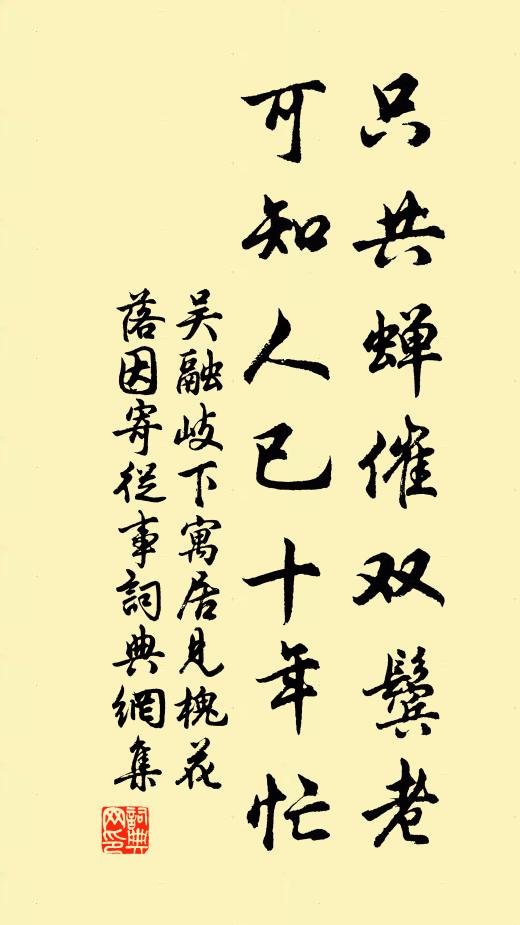 只共蝉催双鬓老
可知人已十年忙
吴融岐下寓居见槐花
落因寄從事詞典網集
詞典
网印